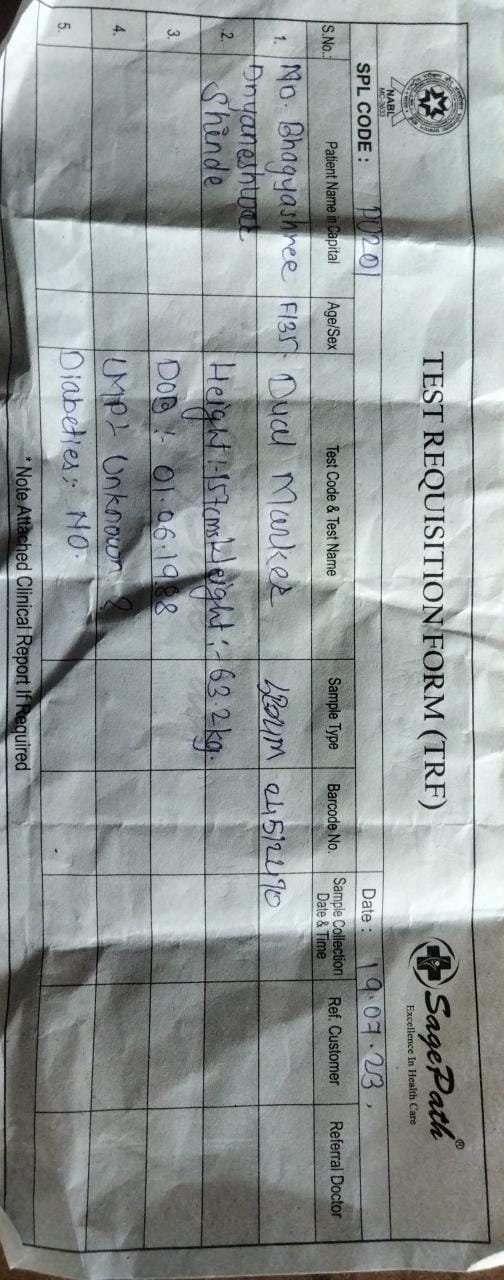 NABL
MC-3633
TEST REQUISITION FORM (TRF)
SagePath®
Excellence In Health Care
SPL CODE : PU201
Date : 19.07.23,
S.No.: Patient Name in Capital Age/Sex Test Code & Test Name Sample Type Barcode No. Sample Collection Date & Time Ref. Customer Referral Doctor
1. Mo. Bhagyashree F/35. Dual Marker serum 24512290
Dnyaneshwar
2. Shinde Height:-157cms Weight:-63.2kg.
3. DOB :- 01.06.1988
4. LMP:- Unknown ?
5. Diabeties:- NO.
* Note Attached Clinical Report If Required